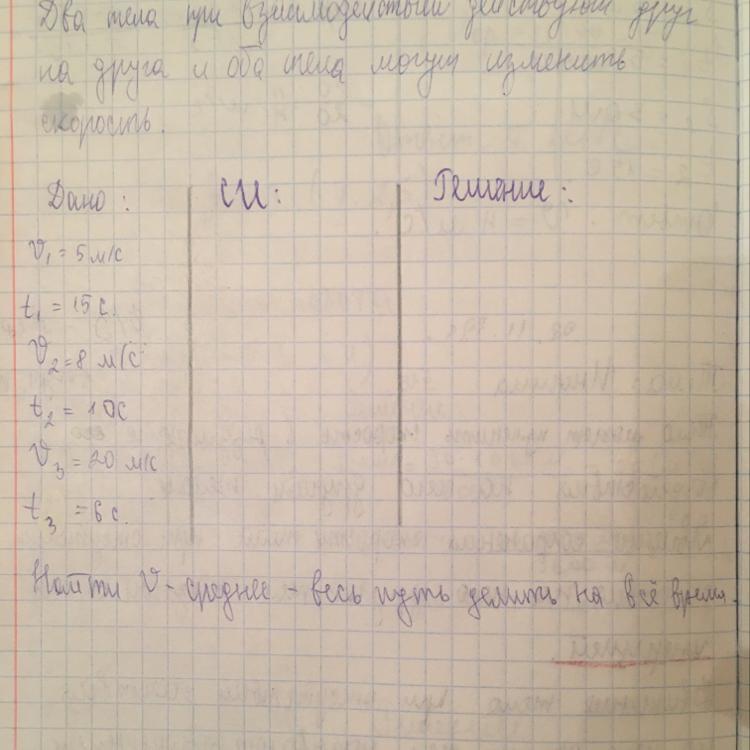 Два тела при взаимодействии действуют друг
на друга и оба тела могут изменить
скорость.
Дано: СИ: Решение:
V₁ = 5 м/с
t₁ = 15 с.
V₂ = 8 м/с
t₂ = 10с
V₃ = 20 м/с
t₃ = 6 с.
Найти V - среднее - весь путь делить на всё время.